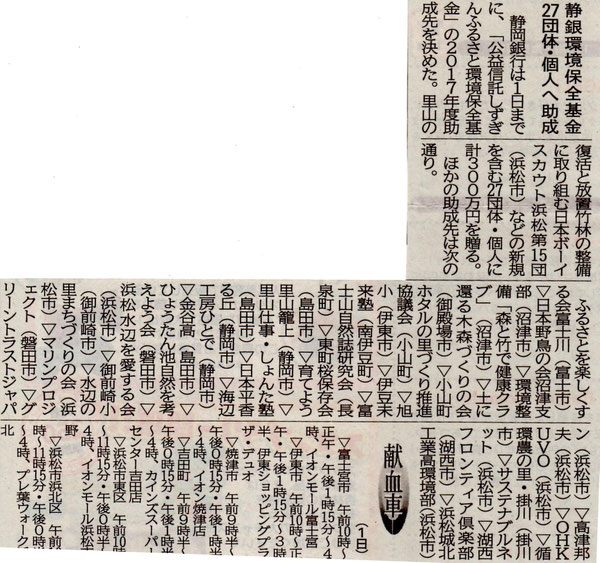 静銀環境保全基金
27団体・個人へ助成
静岡銀行は1日まで
に、「公益信託しずぎ
んふるさと環境保全基
金」の2017年度助
成先を決めた。里山の
復活と放置竹林の整備
に取り組む日本ボーイ
スカウト浜松第15団
（浜松市）などの新規
を含む27団体・個人に
計300万円を贈る。
ほかの助成先は次の
通り。
ふるさとを楽しくす
る会富士川（富士市）
▽日本野鳥の会沼津支
部（沼津市）▽環境整
備「森と竹で健康クラ
ブ」（沼津市）▽土に
還る木森づくりの会
（御殿場市）▽小山町
ホタルの里づくり推進
協議会（小山町）▽旭
小（伊東市）▽伊豆未
来塾（南伊豆町）▽富
士山自然誌研究会（長
泉町）▽東町桜保存会
（島田市）▽育てよう
里山龍上（静岡市）▽
里山仕事・しょんた塾
（島田市）▽日本平香
る丘（静岡市）▽海辺
工房ひとで（静岡市）
▽金谷高（島田市）▽
ひょうたん池自然を考
えよう会（磐田市）▽
浜松水辺を愛する会
（浜松市）▽御前崎小
（御前崎市）▽水辺の
里まちづくりの会（浜
松市）▽マリンプロジ
ェクト（磐田市）▽グ
リーントラストジャパ
ン（浜松市）▽高津邦
夫（浜松市）▽OHK
UVO（浜松市）▽循
環農の里・掛川（掛川
市）▽サステナブルネ
ット（浜松市）▽湖西
フロンティア倶楽部
（湖西市）▽浜松城北
工業高環境部（浜松市）
献血車
（1日）
▽富士宮市 午前10時〜
正午・午後1時15分〜4
時、イオンモール富士宮
▽伊東市 午前10時〜正
午・午後1時15分〜3時
半、伊東ショッピングプラ
ザ・デュオ
▽焼津市 午前9時半〜
午後0時15分・午後1時半
〜4時、イオン焼津店
▽吉田町 午前9時半〜
午後0時15分・午後1時半
〜4時、カインズスーパー
センター吉田店
▽浜松市東区 午前10時
〜11時15分・午後0時半〜
4時、イオンモール浜松市
野
▽浜松市浜北区 午前10
時〜11時15分・午後0時半
〜4時、プレ葉ウォーク浜
北